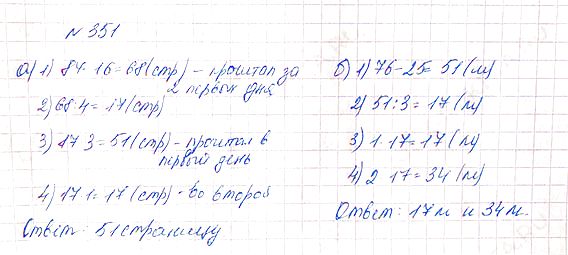 № 351
а) 1) 84-16=68(стр) - прочитал за
2 первых дня
2) 68:4=17(стр)
3) 17·3=51(стр) - прочитал в
первый день
4) 17·1=17 (стр) - во второй
Ответ: 51 страницу
б) 1) 76-25= 51 (м)
2) 51:3=17(м)
3) 1·17=17(м)
4) 2·17=34(м)
Ответ: 17м и 34м.